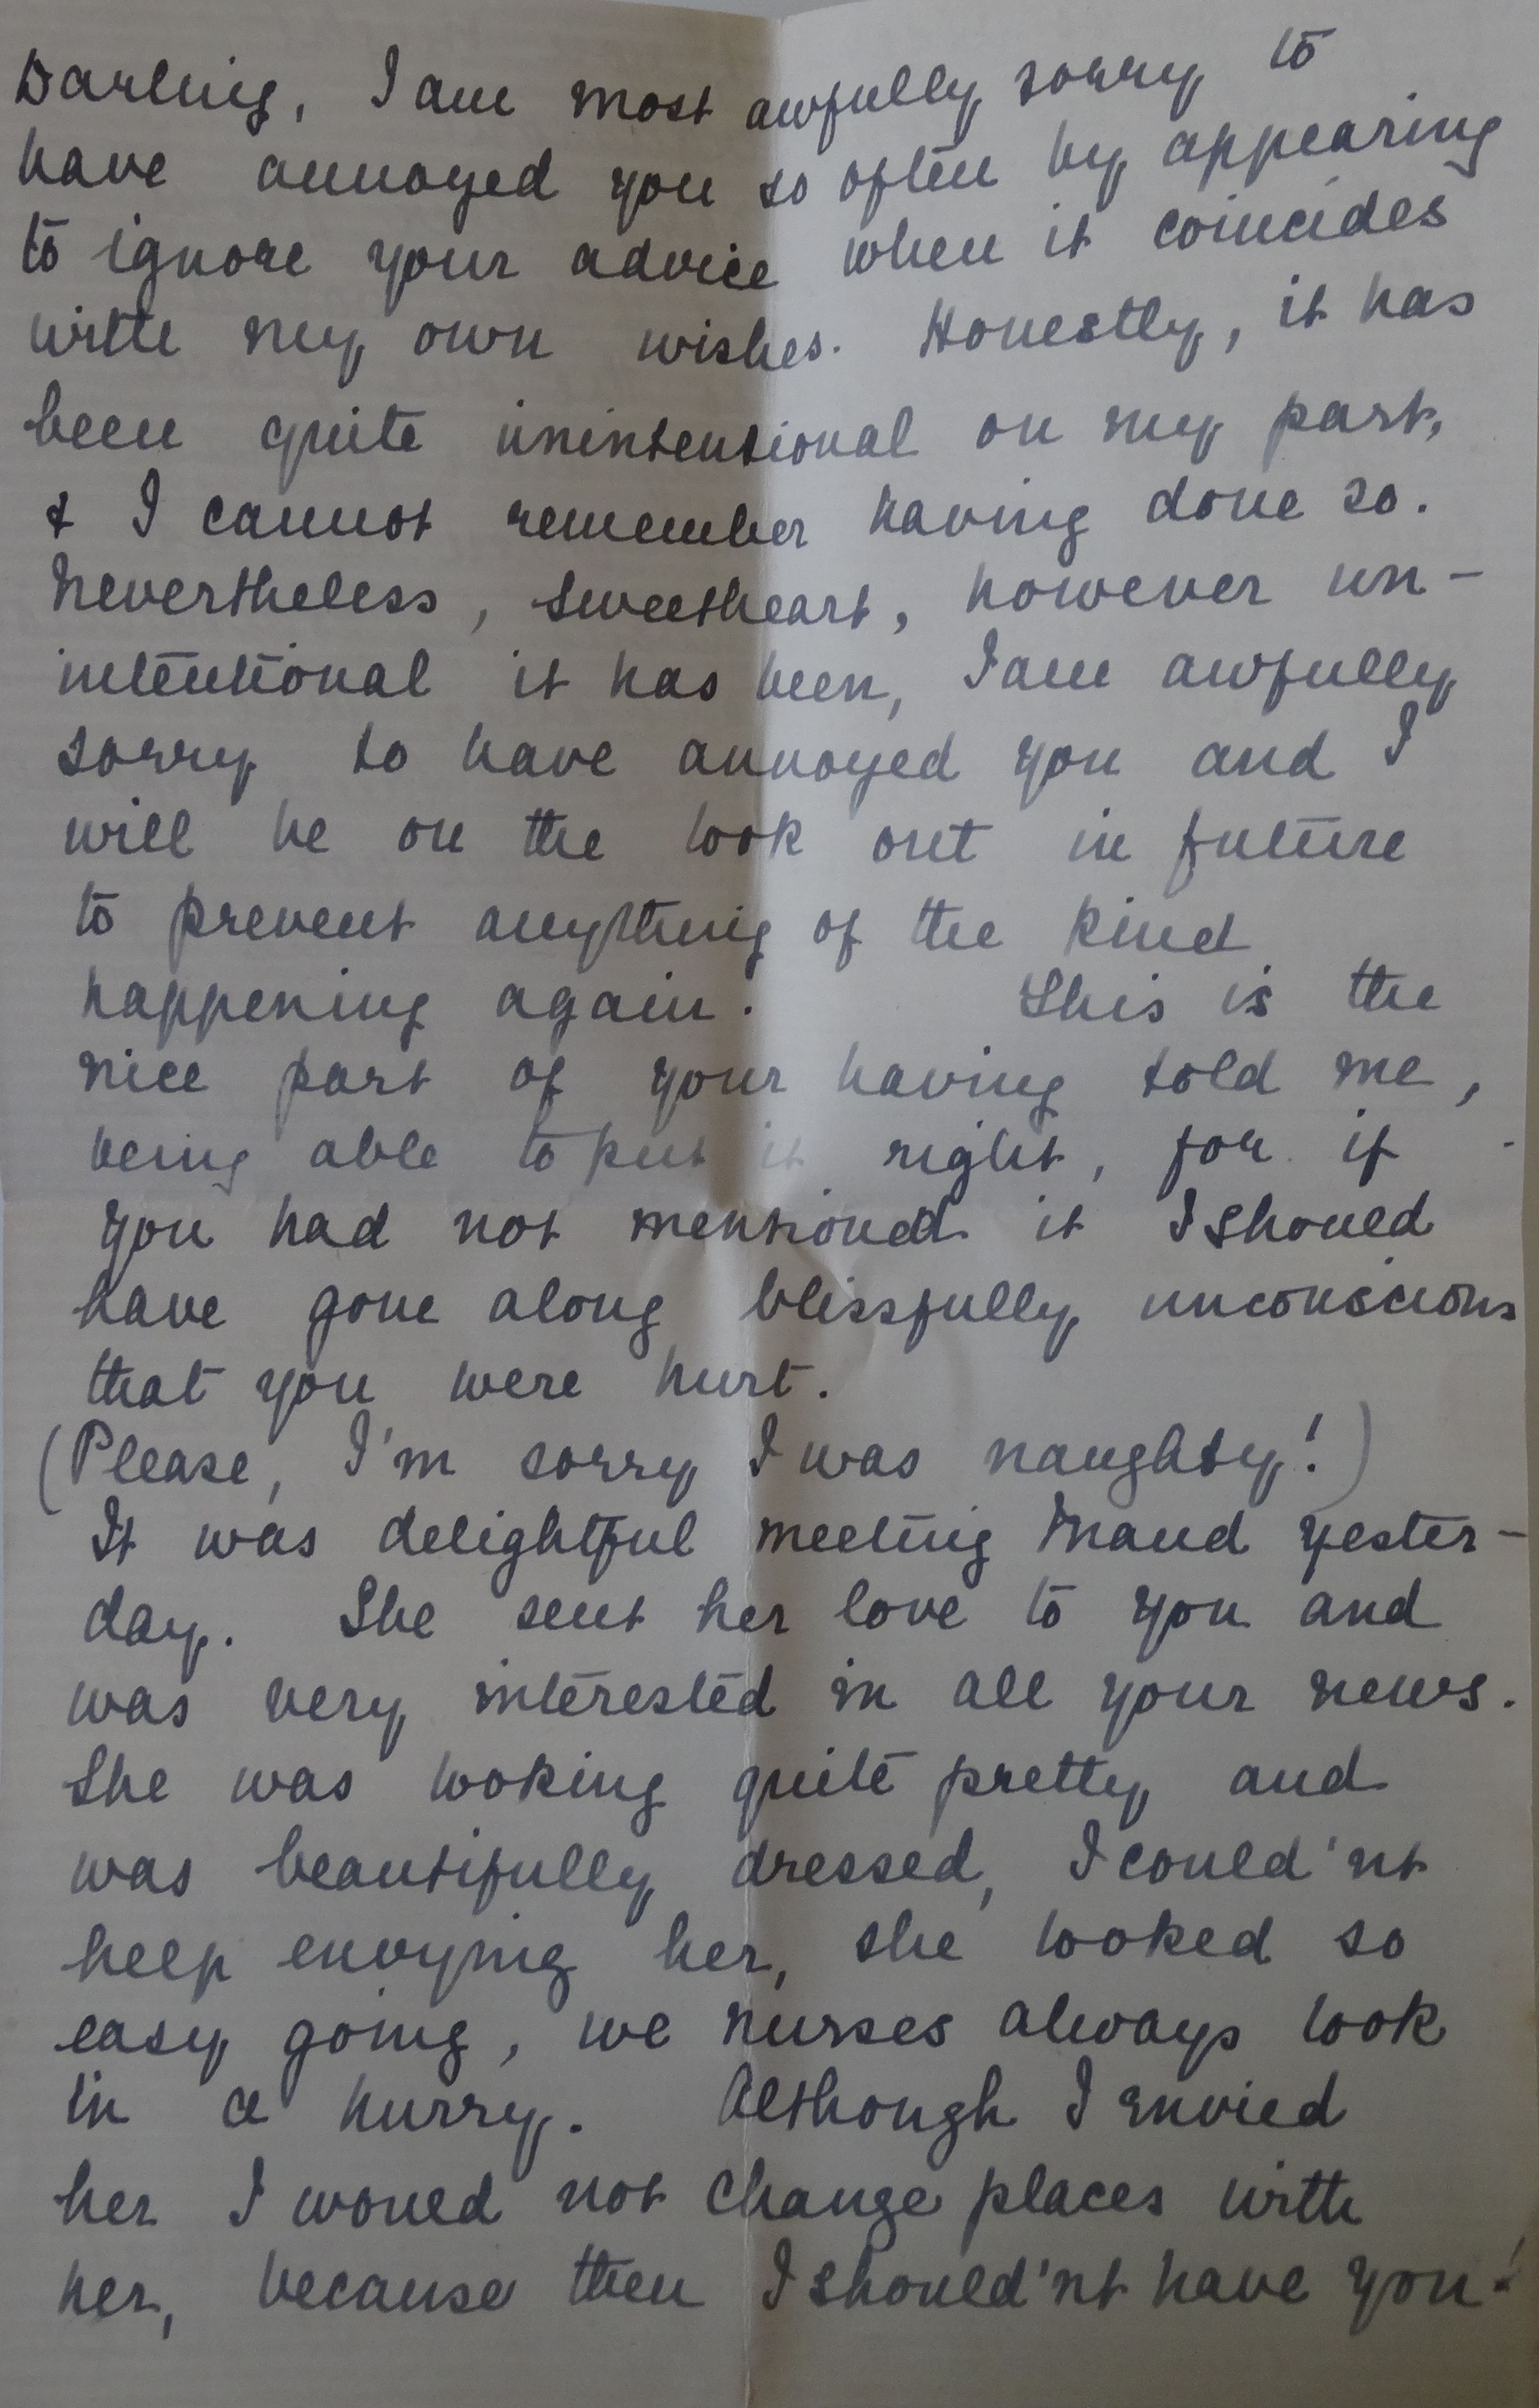 Darling, I am most awfully sorry to
have annoyed you so often by appearing
to ignore your advice when it coincides
with my own wishes. Honestly, it has
been quite unintentional on my part,
& I cannot remember having done so.
Nevertheless, sweetheart, however un-
intentional it has been, I am awfully
sorry to have annoyed you and I
will be on the look out in future
to prevent anything of the kind
happening again. This is the
nice part of your having told me,
being able to put it right, for if
you had not mentioned it I should
have gone along blissfully unconscious
that you were hurt.
(Please, I'm sorry I was naughty!)
It was delightful meeting Maud yester-
day. She sent her love to you and
was very interested in all your news.
She was looking quite pretty and
was beautifully dressed, I could'nt
help envying her, she looked so
easy going, we nurses always look
in a hurry. Although I envied
her I would not change places with
her, because then I should'nt have you!